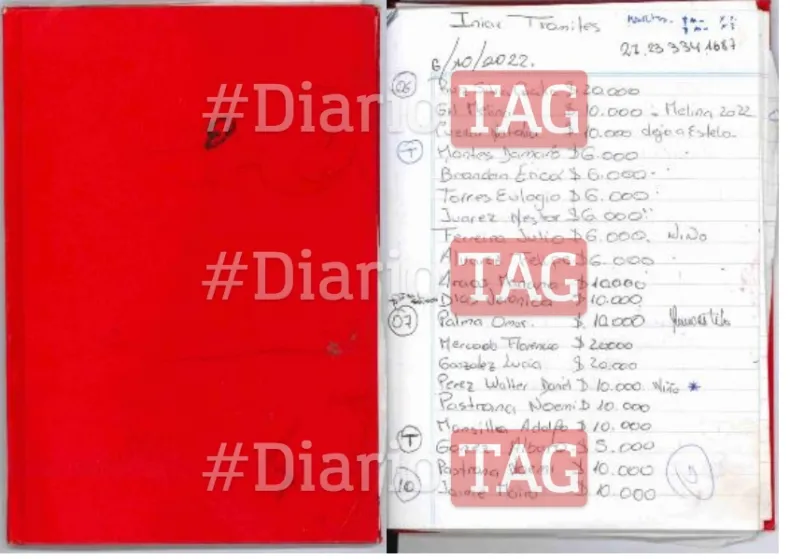 #Diario TAG
#Diario TAG
#Diario TAG
Iniciar Tramites
27 23 334 1687
6/10/2022.
06
$ 20.000
Gil $ 10.000 Melina 2022
$ 10.000 dejo a Estela
T Montes Damaris $ 6.000
Brandan Erica $ 6.000
Torres Eulogio $ 6.000
Juarez Nestor $ 6.000
Ferreira Julio $ 6.000. Niño
$ 6.000
$ 10.000
Diaz Veronica $ 10.000
07 Palma Omar. $ 10.000
Mercado Florencio $ 20000
Gonzalez Lucia $ 20.000
Perez Walter Daniel $ 10.000 Niño *
Pastrana Noemi $ 10.000
Mansilla Adolfo $ 10.000
T $ 5.000
Pastrana Noemi $ 10.000
10 Jaime $ 10.000